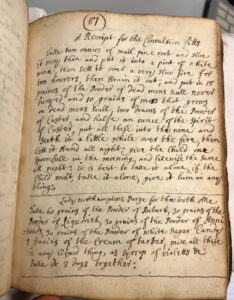 (61)
A Receipt for the Convulsion Fitts
Take two ounces of mail pine root and slice
it very thin and put it into a pint of white
wine, then sett it over a very slow fire for
two howers, then strain it out, and put in 15
graines of the Powder of dead mens scull never
buryed, and 10 graines of moss that grows
on dead mens scull, two Drams of the Powder
of Castor, and halfe an ounce of the Spirit
of Castor, put all these into the wine and
heat it a little while over the fire, then
lett it stand all night; give the Child one
spoonfull in the morning, and likewise the same
att night: it is best to take it alone, if the
Child wont take it alone, give it him in any
thing:
Lady Northamptons Purge for the both Ake
Take 60 graines of the Powder of Rubarb, 30 graines of the
Powder of Liquorish, 30 graines of the Powder of
seeds, 30 graines of the Powder of white Sugar Candy
3 graines of the Cream of tartar, give all these
in any liquid thing, as Syrup of violetts
take it 3 days together: